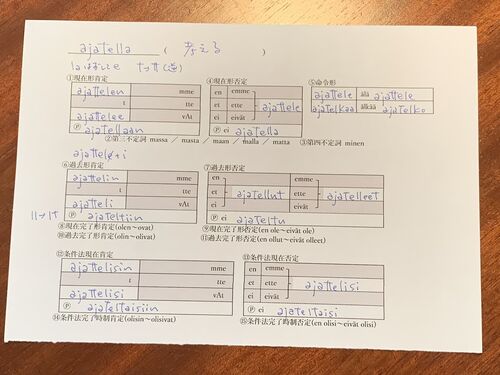 ajatella ( 考える )
①現在形肯定 ④現在形否定 ⑤命令形
ajattelen mme en emme ajattele älä ajattele
t tte et ette ajattele ajatelkaa älkää ajatelko
ajattelee vAt ei eivät
Ⓟ ajatellaan Ⓟ ei ajatella
②第三不定詞 massa / masta / maan / malla / matta ③第四不定詞 minen
⑥過去形肯定 ⑦過去形否定
ajattelin mme en emme
t tte et ajatellut ette ajatelleet
ajatteli vAt ei eivät
ll→lt Ⓟ ajateltiin Ⓟ ei ajateltu
⑧現在完了形肯定(olen～ovat) ⑨現在完了形否定(en ole～eivät ole)
⑩過去完了形肯定(olin～olivat) ⑪過去完了形否定(en ollut～eivät olleet)
⑫条件法現在肯定 ⑬条件法現在否定
ajattelisin mme en emme
t tte et ette ajattelisi
ajattelisi vAt ei eivät
Ⓟ ajateltaisiin Ⓟ ei ajateltaisi
⑭条件法完了時制肯定(olisin～olisivat) ⑮条件法完了時制否定(en olisi～eivät olisi)